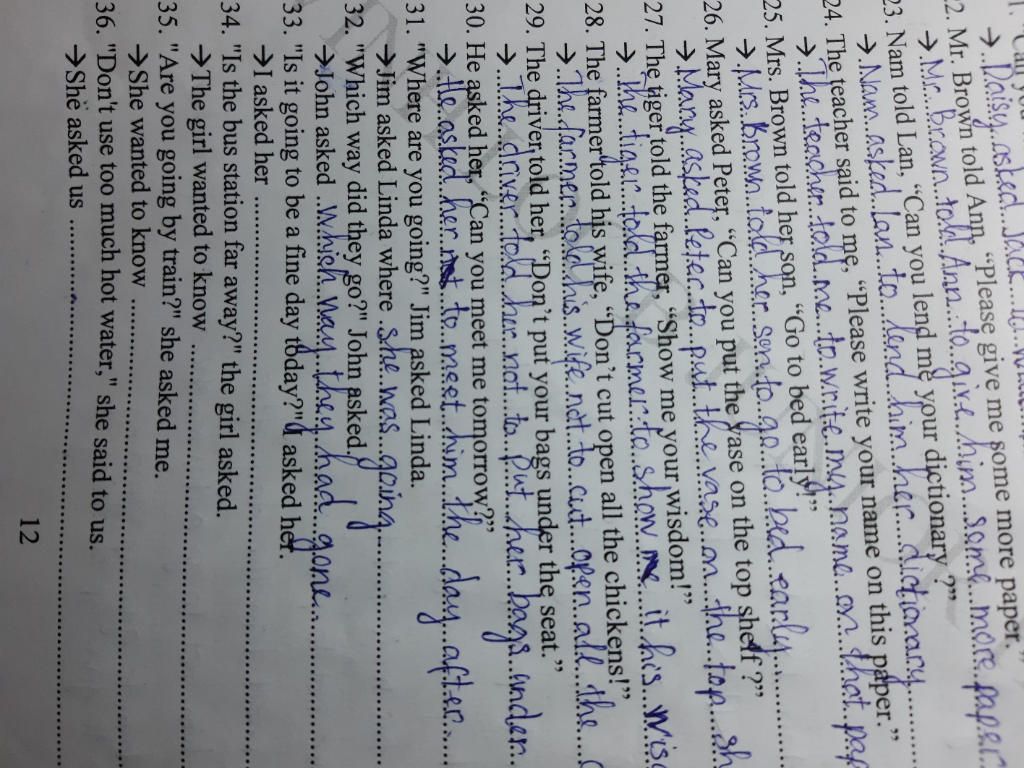 Daisy asked Jack to
22. Mr. Brown told Ann, "Please give me some more paper."
→ Mr. Brown told Ann to give him some more paper
23. Nam told Lan, "Can you lend me your dictionary?"
→ Nam asked Lan to lend him her dictionary
24. The teacher said to me, "Please write your name on this paper."
→ The teacher told me to write my name on that pap
25. Mrs. Brown told her son, "Go to bed early!"
→ Mrs. Brown told her son to go to bed early
26. Mary asked Peter, "Can you put the vase on the top shelf?"
→ Mary asked Peter to put the vase on the top sh
27. The tiger told the farmer, "Show me your wisdom!"
→ The tiger told the farmer to show it his wisd
28. The farmer told his wife, "Don't cut open all the chickens!"
→ The farmer told his wife not to cut open all the c
29. The driver told her, "Don't put your bags under the seat."
→ The driver told her not to put her bags under
30. He asked her, "Can you meet me tomorrow?"
→ He asked her to meet him the day after
31. "Where are you going?" Jim asked Linda.
→ Jim asked Linda where she was going
32. "Which way did they go?" John asked.
→ John asked which way they had gone.
33. "Is it going to be a fine day today?" I asked her
→ I asked her
34. "Is the bus station far away?" the girl asked.
→ The girl wanted to know
35. "Are you going by train?" she asked me.
→ She wanted to know
36. "Don't use too much hot water," she said to us.
→ She asked us
12